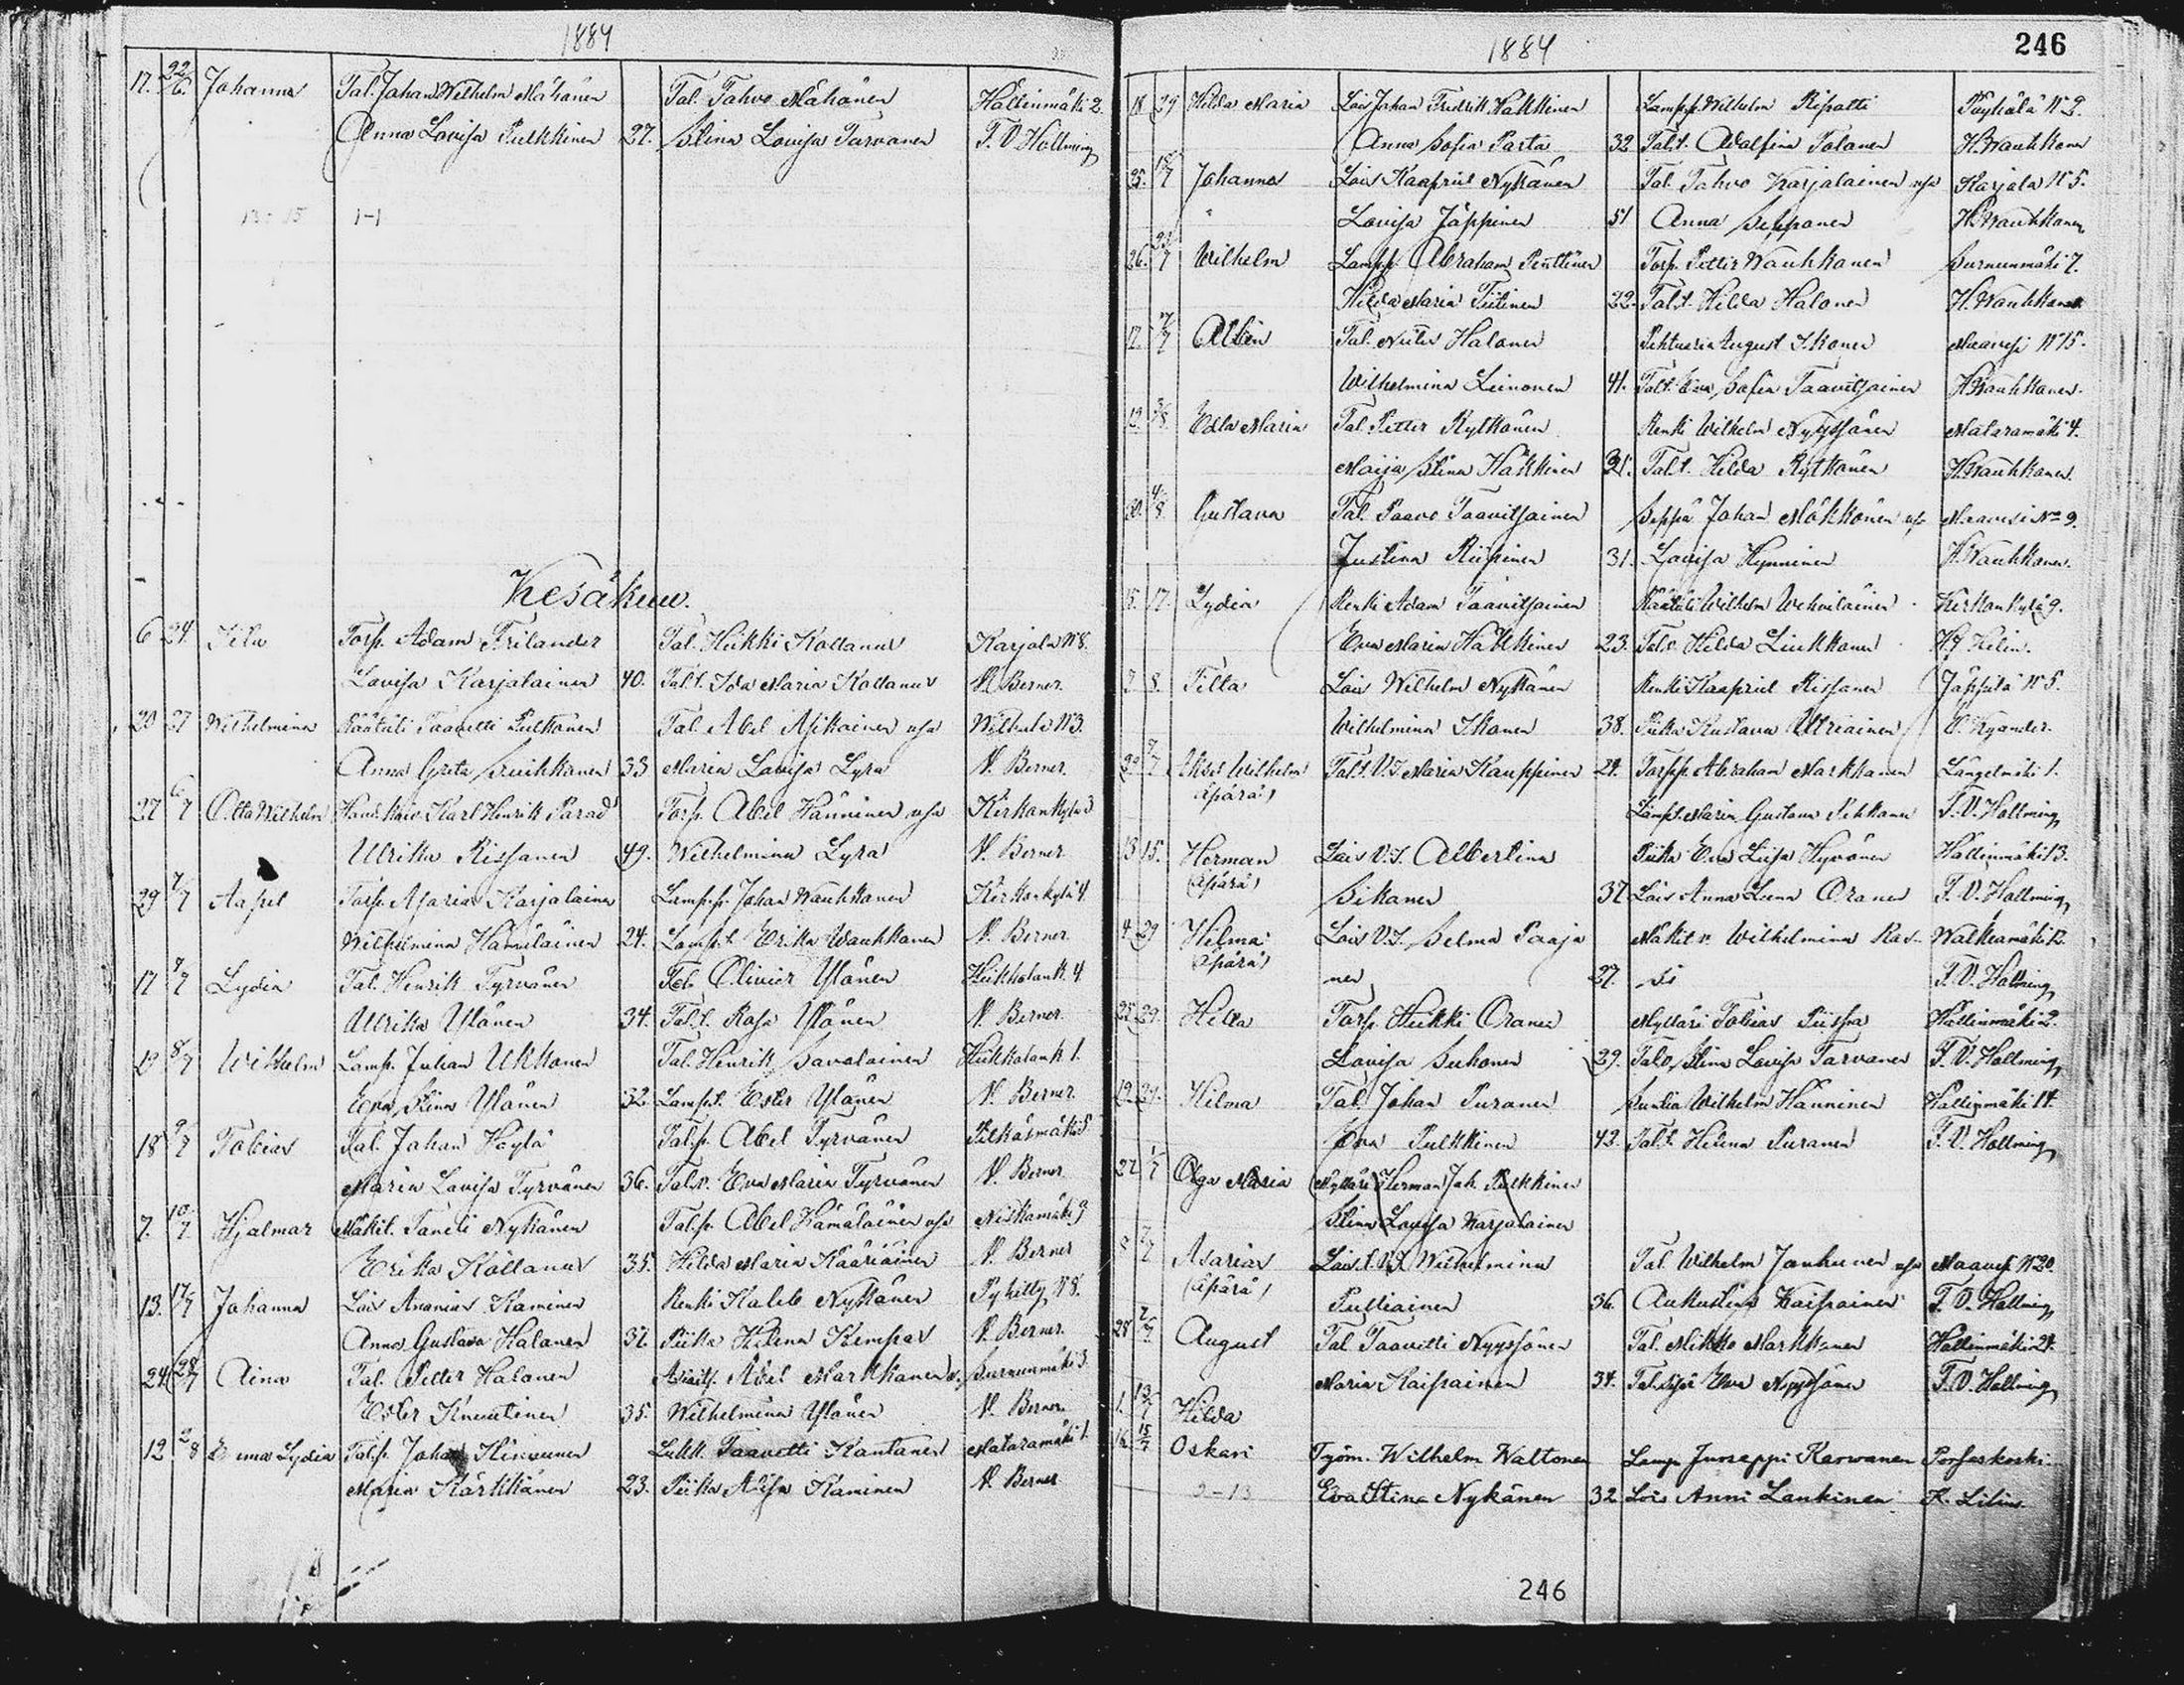 1884
17. 22/6. Johanna Tal. Johan Wilhelm Mähönen Tal. Tahvo Mähönen Hällinmäki 2.
Anna Lovisa Pulkkinen 27. Stina Lovisa Tarvanen T. V. Hollming
Kesäkuu.
6 24 Torp. Adam Frilander Tal. Heikki Kollanus Karjala N 8.
Lovisa Karjalainen 40. Tal.t. Ida Maria Kollanus N. Berner.
20 27 Wilhelmina Räätäli Taavetti Pulkkänen Tal. Abel Asikainen
Anna Greta Suihkanen 33 Maria Lovisa Lyra N. Berner.
27 6/7 Otto Wilhelm Karl Henrik Parad Torp. Abel Hänninen Kirkonkylä 3
Ulrika Rissanen 49. Wilhelmina Lyra N. Berner
29 7/7 Aapel Torp. Asarias Karjalainen Lamp.p. Johan Wauhkonen Kirkonkylä 4
Wilhelmina Hämäläinen 24. Lamp.t. Erika Wauhkonen N. Berner.
17 7/7 Lydia Tal. Henrik Tyrvänen Tal. Olivier Ylönen Heikkolank. 4
Ulrika Ylönen 34. Tal.t. Rosa Ylönen N. Berner.
19 8/7 Wilhelm Lamp. Juhan Ukkonen Tal. Henrik Savolainen Heikkolank 1.
Eva Stina Ylönen 32. Lamp.t. Ester Ylönen N. Berner
18 9/7 Tobias Tal. Johan Höylä Tal.p. Abel Tyrvänen
Maria Lovisa Tyrvänen 36. Tal.v. Eva Maria Tyrvänen N. Berner
7. 10/7. Hjalmar Mäkit. Taneli Nykänen Tal.p. Abel Hämäläinen Niskamäki 9
Erika Kollanus 35. Hilda Maria Kääriäinen N. Berner
13. 17/7 Johanna Lois Ananias Kaminen Renki Kaleb Nykänen Pyhitty N 8.
Anna Gustava Halonen 32. Piika Helena Kempas N. Berner.
24 28/7 Aina Tal. Petter Halonen Abel Markkanen Surnunmäki 3
Ester Knuutinen 35. Wilhelmina Ylönen N. Berner.
12 2/8 Emma Lydia Tal.p. Johan Hinounen Lukk. Taavetti Kantanen Mataramäki 1.
Maria Kärkkänen 23. Piika Kaminen N. Berner
1884 246
18 29 Hilda Maria Lois Johan Fredrik Häkkinen Lamp.p. Wilhelm Ripatti Pöyhölä N 2.
Anna Sofia Parta 32 Tal.t. Adolfina Tolanen H. Wauhkonen
25. 18/7 Johanna Lois Kaapriel Nykänen Tal. Tahvo Karjalainen Karjala N 5.
Lovisa Jäppinen 51 Anna Seppänen H. Wauhkonen
26. 25/7 Wilhelm Lamp.p. Abraham Penttinen Torp. Petter Wauhkonen Surnunmäki 7.
Hilda Maria Tiitinen 22. Tal.t. Hilda Halonen H. Wauhkonen
12. Albin Tal. Niilo Halonen August Ikonen Maavesi N 15.
Wilhelmina Leinonen 41. Tal.t. Eva Sofia Taavitsainen H. Wauhkonen.
12. 3/8 Edla Maria Tal. Petter Rytkönen Renki Wilhelm Nyyssönen Mataramäki 4.
Maija Stina Häkkinen 31. Tal.t. Hilda Rytkönen H. Wauhkonen.
30. 4/8 Gustava Tal. Paavo Taavitsainen Seppä Johan Mökkönen Maavesi No 9.
Justina Riipinen 31. Lovisa Hynninen H. Wauhkonen.
15. 17. Lydia Renki Adam Taavitsainen Räätäli Wilhelm Wehviläinen Kirkonkylä 9.
Eva Maria Häkkinen 23. Tal.v. Hilda Liukkonen Hj. Helin.
7. 8. Tilta Lois Wilhelm Nykänen Renki Kaapriel Rissanen Jäppilä N 5.
Wilhelmina Ikonen 38. Piika Kustava Utriainen O. Kyander.
7/7 Wilhelm Tal.t. V.I. Maria Kauppinen 24. Torp.p. Abraham Markkanen Längelmäki 1.
(äpärä) Lamp.t. Maria Gustava Pikkanen T. V. Hollming
13 15. Herman Lois V.I. Albertina Piika Eva Liisa Hyvönen Hällinmäki 3.
(äpärä) Sikanen 37 Lois Anna Leena Oranen T. V. Hollming
4. 29 Hilma Lois V.I. Selma Paaja Mäkit v. Wilhelmina Ras- Walkeamäki 12.
(äpärä) nen 27. si T. V. Hollming
25. 29. Hilda Torp. Heikki Oranen Mylläri Tobias Piispa Hällinmäki 2.
Lovisa Suhonen 29. Tal.v. Stina Lovisa Tarvanen T. V. Hollming
19. 29. Hilma Tal. Johan Puranen Suntio Wilhelm Hänninen Hällinmäki 14.
Eva Pulkkinen 42. Tal.t. Helena Puranen T. V. Hollming
22 1/7 Olga Maria Mylläri Herman Joh. Pulkkinen
Stina Lovisa Karjalainen
2 Asarias Lois.t. V.I. Wilhelmina Tal. Wilhelm Janhunen Maavesi N 20.
(äpärä) Pulliainen 36. Aukustina Kaipainen T. V. Hollming
28 August Tal Taavetti Nyyssönen Tal. Mikko Markkanen Hällinmäki 24.
Maria Kaipainen 34. Eva Nyyssönen T. V. Hollming
1. 13/7 Hilda
16. 15/7 Oskari Työm. Wilhelm Waltonen Lamp. Juoseppi Karvanen Porsaskoski.
2-13 Eva Stina Nykänen 32 Lois Anni Lankinen K. Lilius.
246